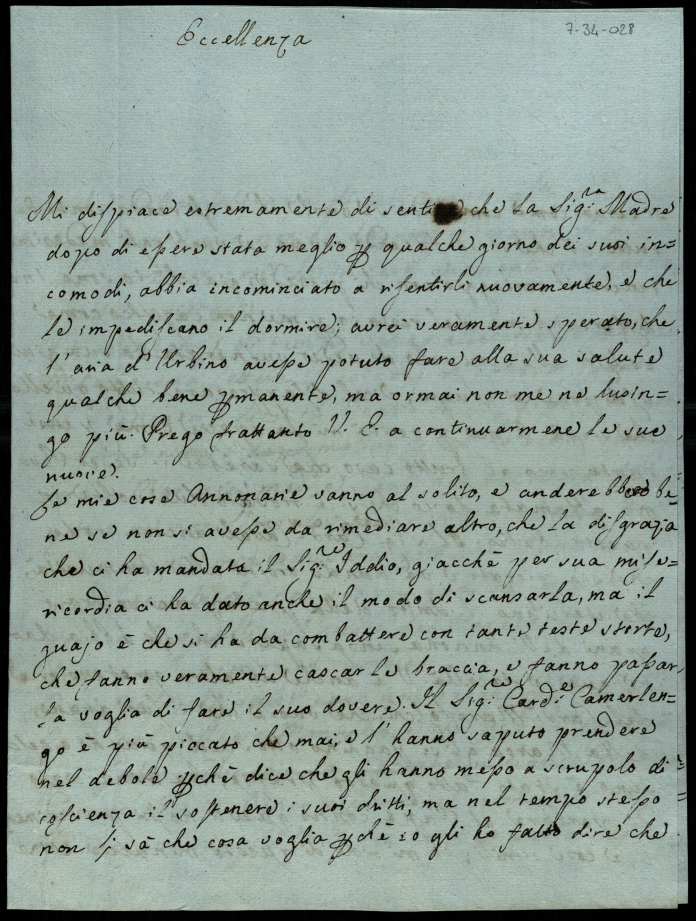 7-34-028
Eccellenza
Mi dispiace estremamente di sentire, che la Sig.ra Madre
dopo di essere stata meglio p qualche giorno dei suoi in=
comodi, abbia incominciato a risentirli nuovamente, e che
le impediscano il dormire; avrei veramente sperato, che
l'aria d'Urbino avesse potuto fare alla sua salute
qualche bene pmanente, ma ormai non me ne lusin=
go più. Prego frattanto V. E. a continuarmene le sue
nuove.
Le mie cose Annonarie vanno al solito, e anderebbero be=
ne se non si avesse da rimediare altro, che la disgrazia
che ci ha mandata il Sig.re Iddio, giacchè per sua mise=
ricordia ci ha dato anche il modo di scansarla, ma il
guajo è che si ha da combattere con tante teste storte,
che fanno veramente cascar le braccia, e fanno passar
la voglia di fare il suo dovere. Il Sig.re Card.e Camerlen=
go è più piccato che mai, e l'hanno saputo prendere
nel debole pchè dice che gli hanno messo a scrupolo di
coscienza il sostenere i suoi dritti, ma nel tempo stesso
non si sà che cosa voglia pchè io gli ho fatto dire che